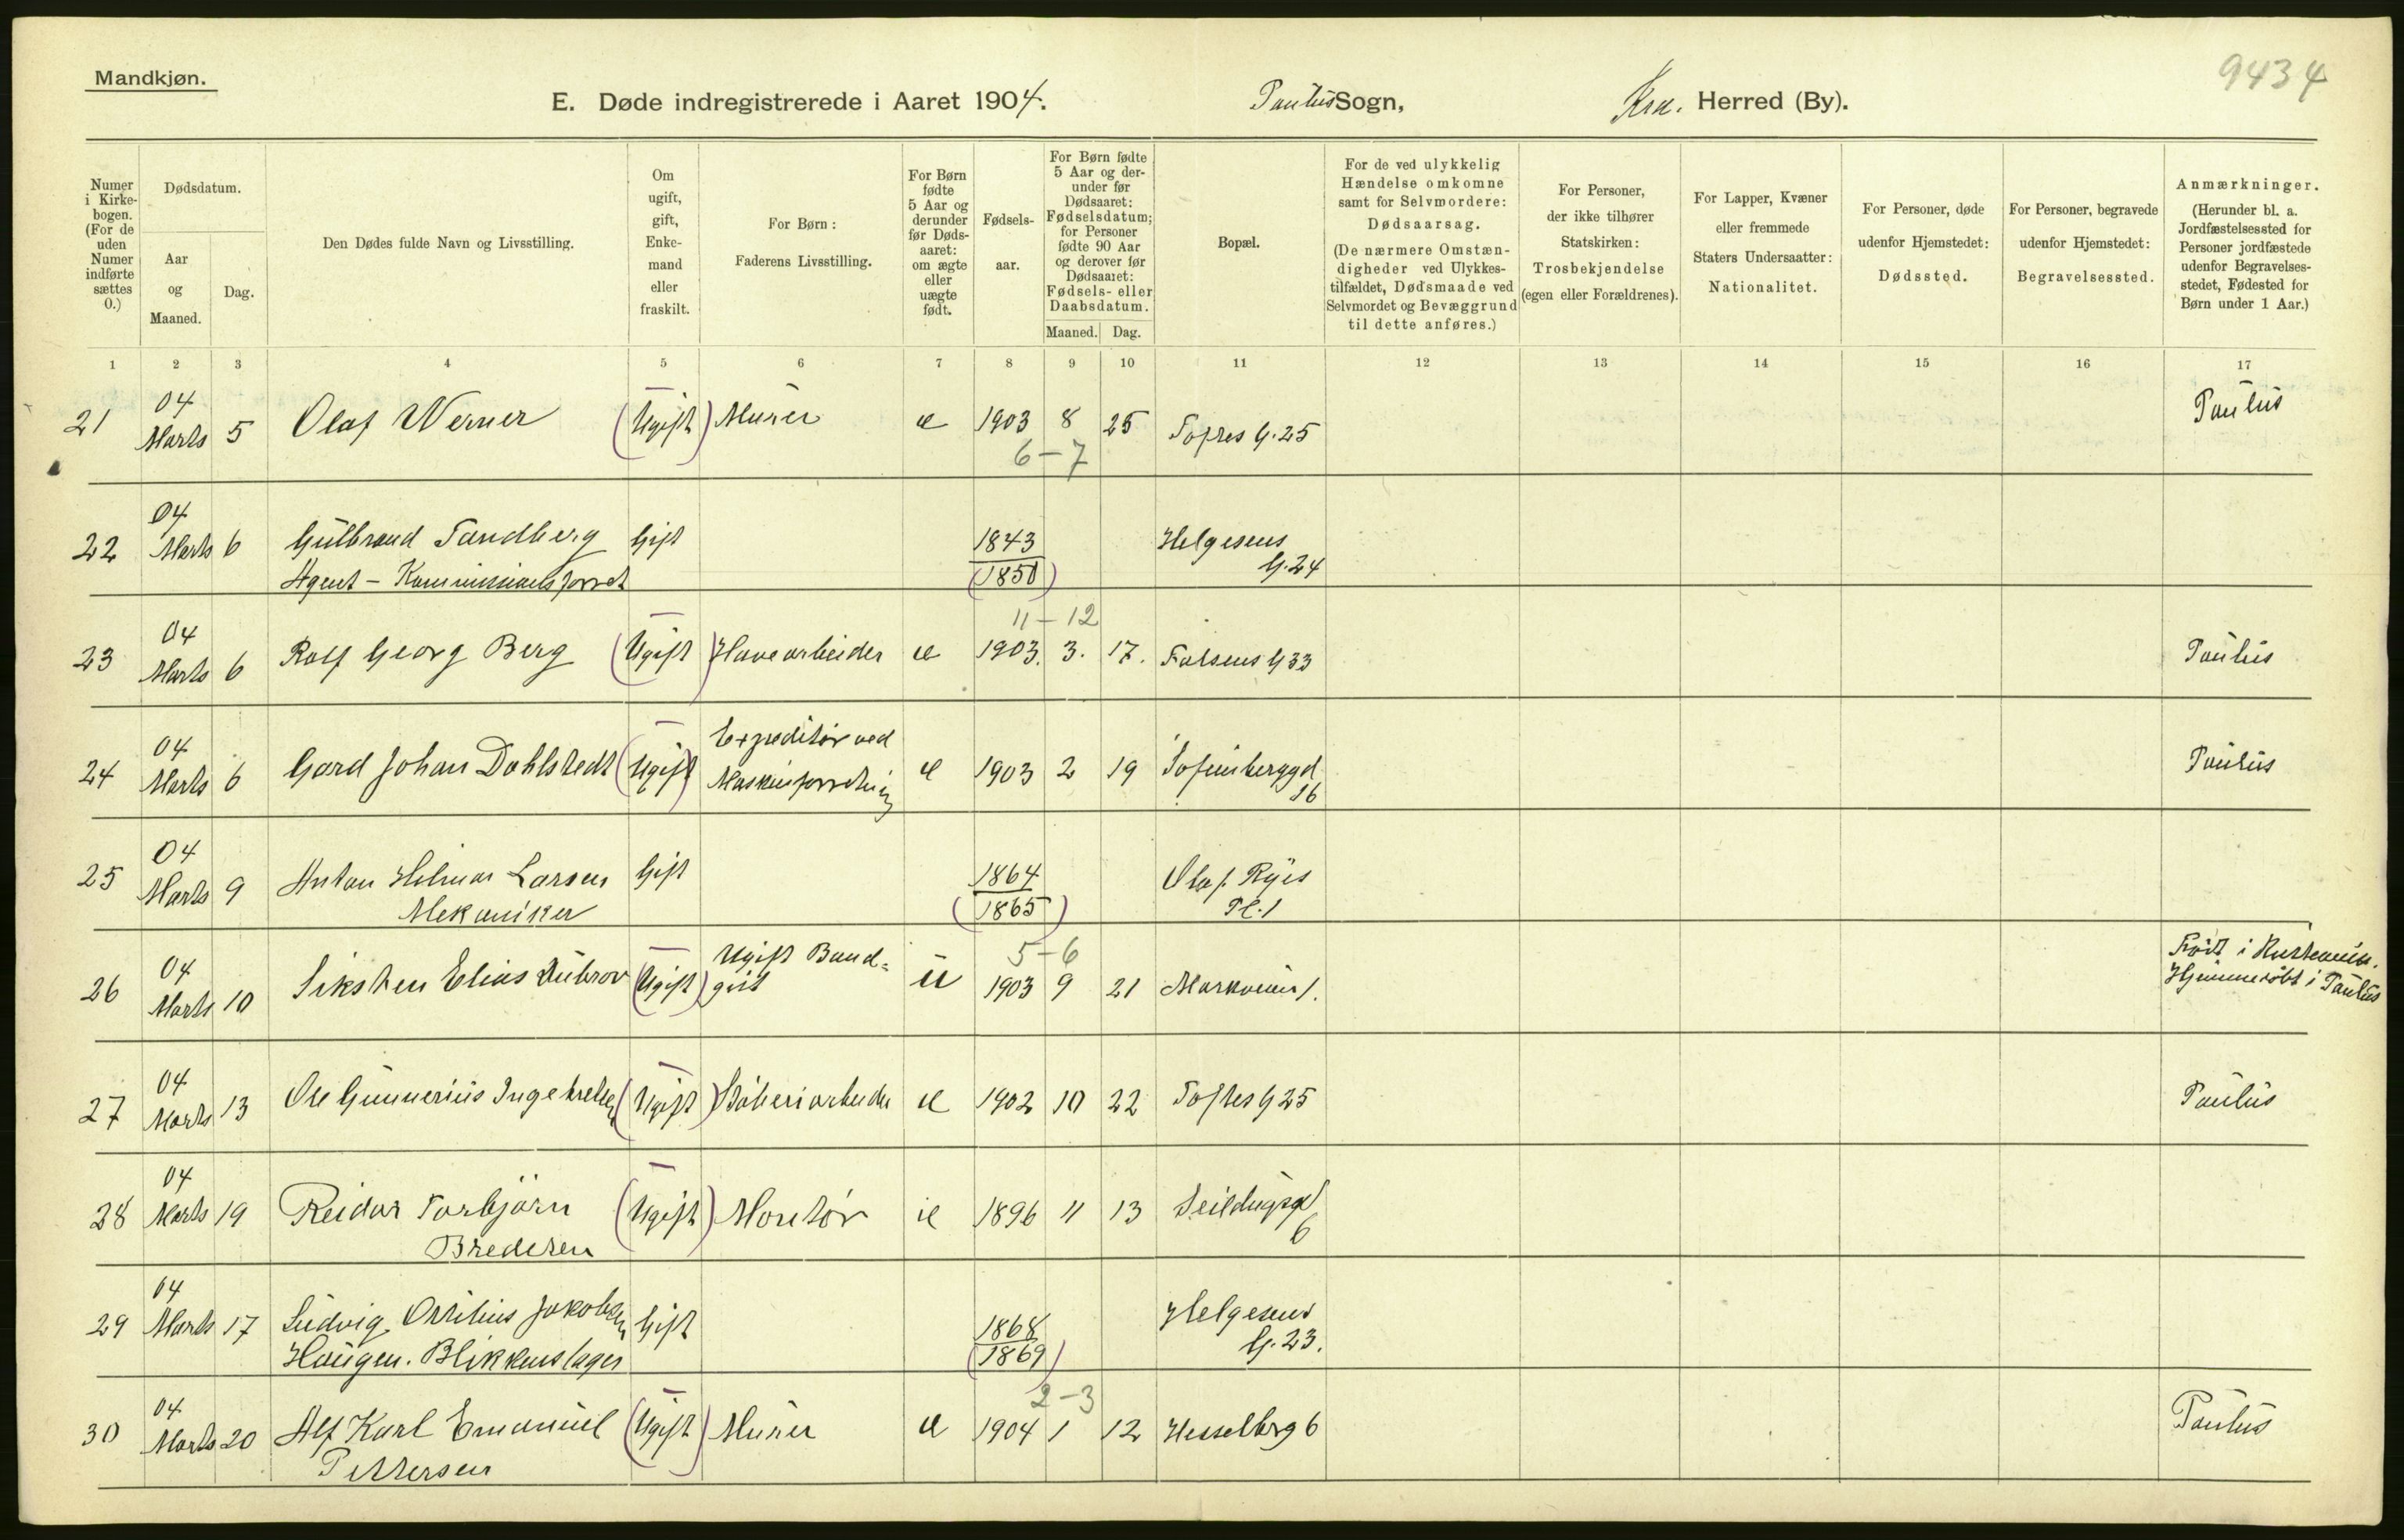 Mandkjøn.
9434
E. Døde indregistrerede i Aaret 1904. Paulus Sogn, Kra. Herred (By).
Numer i Kirkebogen. (For de uden Numer indførte sættes 0.)
Dødsdatum.
Aar og Maaned.
Dag.
Den Dødes fulde Navn og Livsstilling.
Om ugift, gift, Enkemand eller fraskilt.
For Børn: Faderens Livsstilling.
For Børn fødte 5 Aar og derunder før Dødsaaret: om ægte eller uægte født.
Fødselsaar.
For Børn fødte 5 Aar og derunder før Dødsaaret: Fødselsdatum; for Personer fødte 90 Aar og derover før Dødsaaret: Fødsels- eller Daabsdatum.
Maaned. Dag.
Bopæl.
For de ved ulykkelig Hændelse omkomne samt for Selvmordere: Dødsaarsag. (De nærmere Omstændigheder ved Ulykkestilfældet, Dødsmaade ved Selvmordet og Bevæggrund til dette anføres.)
For Personer, der ikke tilhører Statskirken: Trosbekjendelse (egen eller Forældrenes).
For Lapper, Kvæner eller fremmede Staters Undersaatter: Nationalitet.
For Personer, døde udenfor Hjemstedet: Dødssted.
For Personer, begravede udenfor Hjemstedet: Begravelsessted.
Anmærkninger. (Herunder bl. a. Jordfæstelsessted for Personer jordfæstede udenfor Begravelsesstedet, Fødested for Børn under 1 Aar.)
1 2 3 4 5 6 7 8 9 10 11 12 13 14 15 16 17
21 04 Marts 5 Olaf Werner (Ugift) Murer æ 1903 8 25 Toftes G. 25 Paulus
6-7
22 04 Marts 6 Gulbrand Sandberg Gift 1843 Helgesens G. 24
Agent - Kommissionsforret (1850)
11-12
23 04 Marts 6 Rolf Georg Berg (Ugift) Havearbeider æ 1903. 3. 17. Falsens G 33 Paulus
24 04 Marts 6 Gard Johan Dahlstedt (Ugift) Expeditör ved Maskinforretning æ 1903 2 19 Sofienberggd 16 Paulus
25 04 Marts 9 Anton Hilmar Larsen Gift 1864 Olaf Ryes Pl. 1
Mekaniker (1865)
5-6
26 04 Marts 10 Siksten Elias (Ugift) Ugift u 1903 9 21 Markveien 1. Født i
Hjemmedöbt i Paulus
27 04 Marts 13 Ole Gunnerius Ingebretsen (Ugift) Støberiarbeider æ 1902 10 22 Toftes G 25 Paulus
28 04 Marts 19 Reidar Torbjörn (Ugift) Montör æ 1896 11 13 Seildugsgd 6
Bredesen
29 04 Marts 17 Ludvig Jakobsen Gift 1868 Helgesens G. 23.
Haugen. Blikkenslager (1869)
2-3
30 04 Marts 20 Alf Karl Emanuel (Ugift) Murer æ 1904 1 12 Hesselbrg 6 Paulus
Pettersen